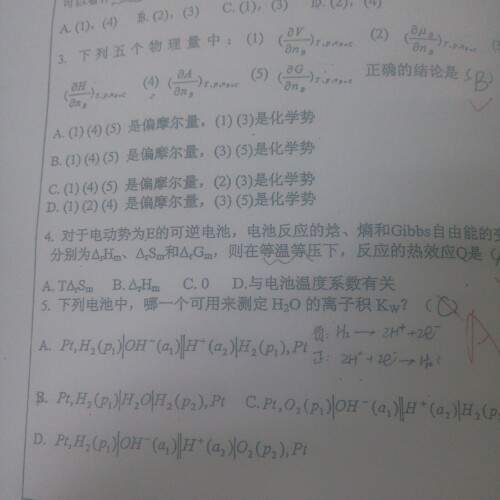 A. (1), (4) B. (2), (3) C. (1), (3) D. (2), (4)
3. 下列五个物理量中：(1) (∂V/∂n_B)_{T,p,n_{B≠C}} (2) (∂μ_B/∂n_B)_{T,p,n_{B≠C}}
(∂H/∂n_B)_{T,p,n_{B≠C}} (4) (∂A/∂n_B)_{T,p,n_{B≠C}} (5) (∂G/∂n_B)_{T,p,n_{B≠C}} 正确的结论是 (B)
A. (1) (4) (5) 是偏摩尔量，(1) (3)是化学势
B. (1) (4) (5) 是偏摩尔量，(3) (5)是化学势
C. (1) (4) (5) 是偏摩尔量，(2) (3)是化学势
D. (1) (2) (4) 是偏摩尔量，(3) (5)是化学势
4. 对于电动势为E的可逆电池，电池反应的焓、熵和Gibbs自由能的变
分别为Δ_rH_m、Δ_rS_m和Δ_rG_m，则在等温等压下，反应的热效应Q是 (
A. TΔ_rS_m B. Δ_rH_m C. 0 D.与电池温度系数有关
5. 下列电池中，哪一个可用来测定 H₂O 的离子积 Kw? (
A. Pt,H₂(p₁)|OH⁻(a₁)‖H⁺(a₂)|H₂(p₂),Pt
负: H₂ → 2H⁺+2e⁻
正: 2H⁺+2e⁻→H₂
B. Pt,H₂(p₁)|H₂O|H₂(p₂),Pt C. Pt,O₂(p₁)|OH⁻(a₁)‖H⁺(a₂)|H₂(p
D. Pt,H₂(p₁)|OH⁻(a₁)‖H⁺(a₂)|O₂(p₂),Pt